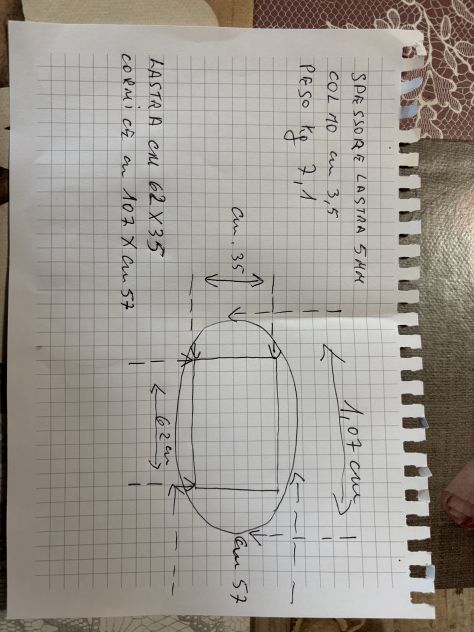 SPESSORE LASTRA 5 MM
COLMO cm 3,5
PESO kg 7,1
1,07 cm
cm. 35
62 cm
cm 57
LASTRA CM 62 X 35
CORNICE cm 107 X cm 57